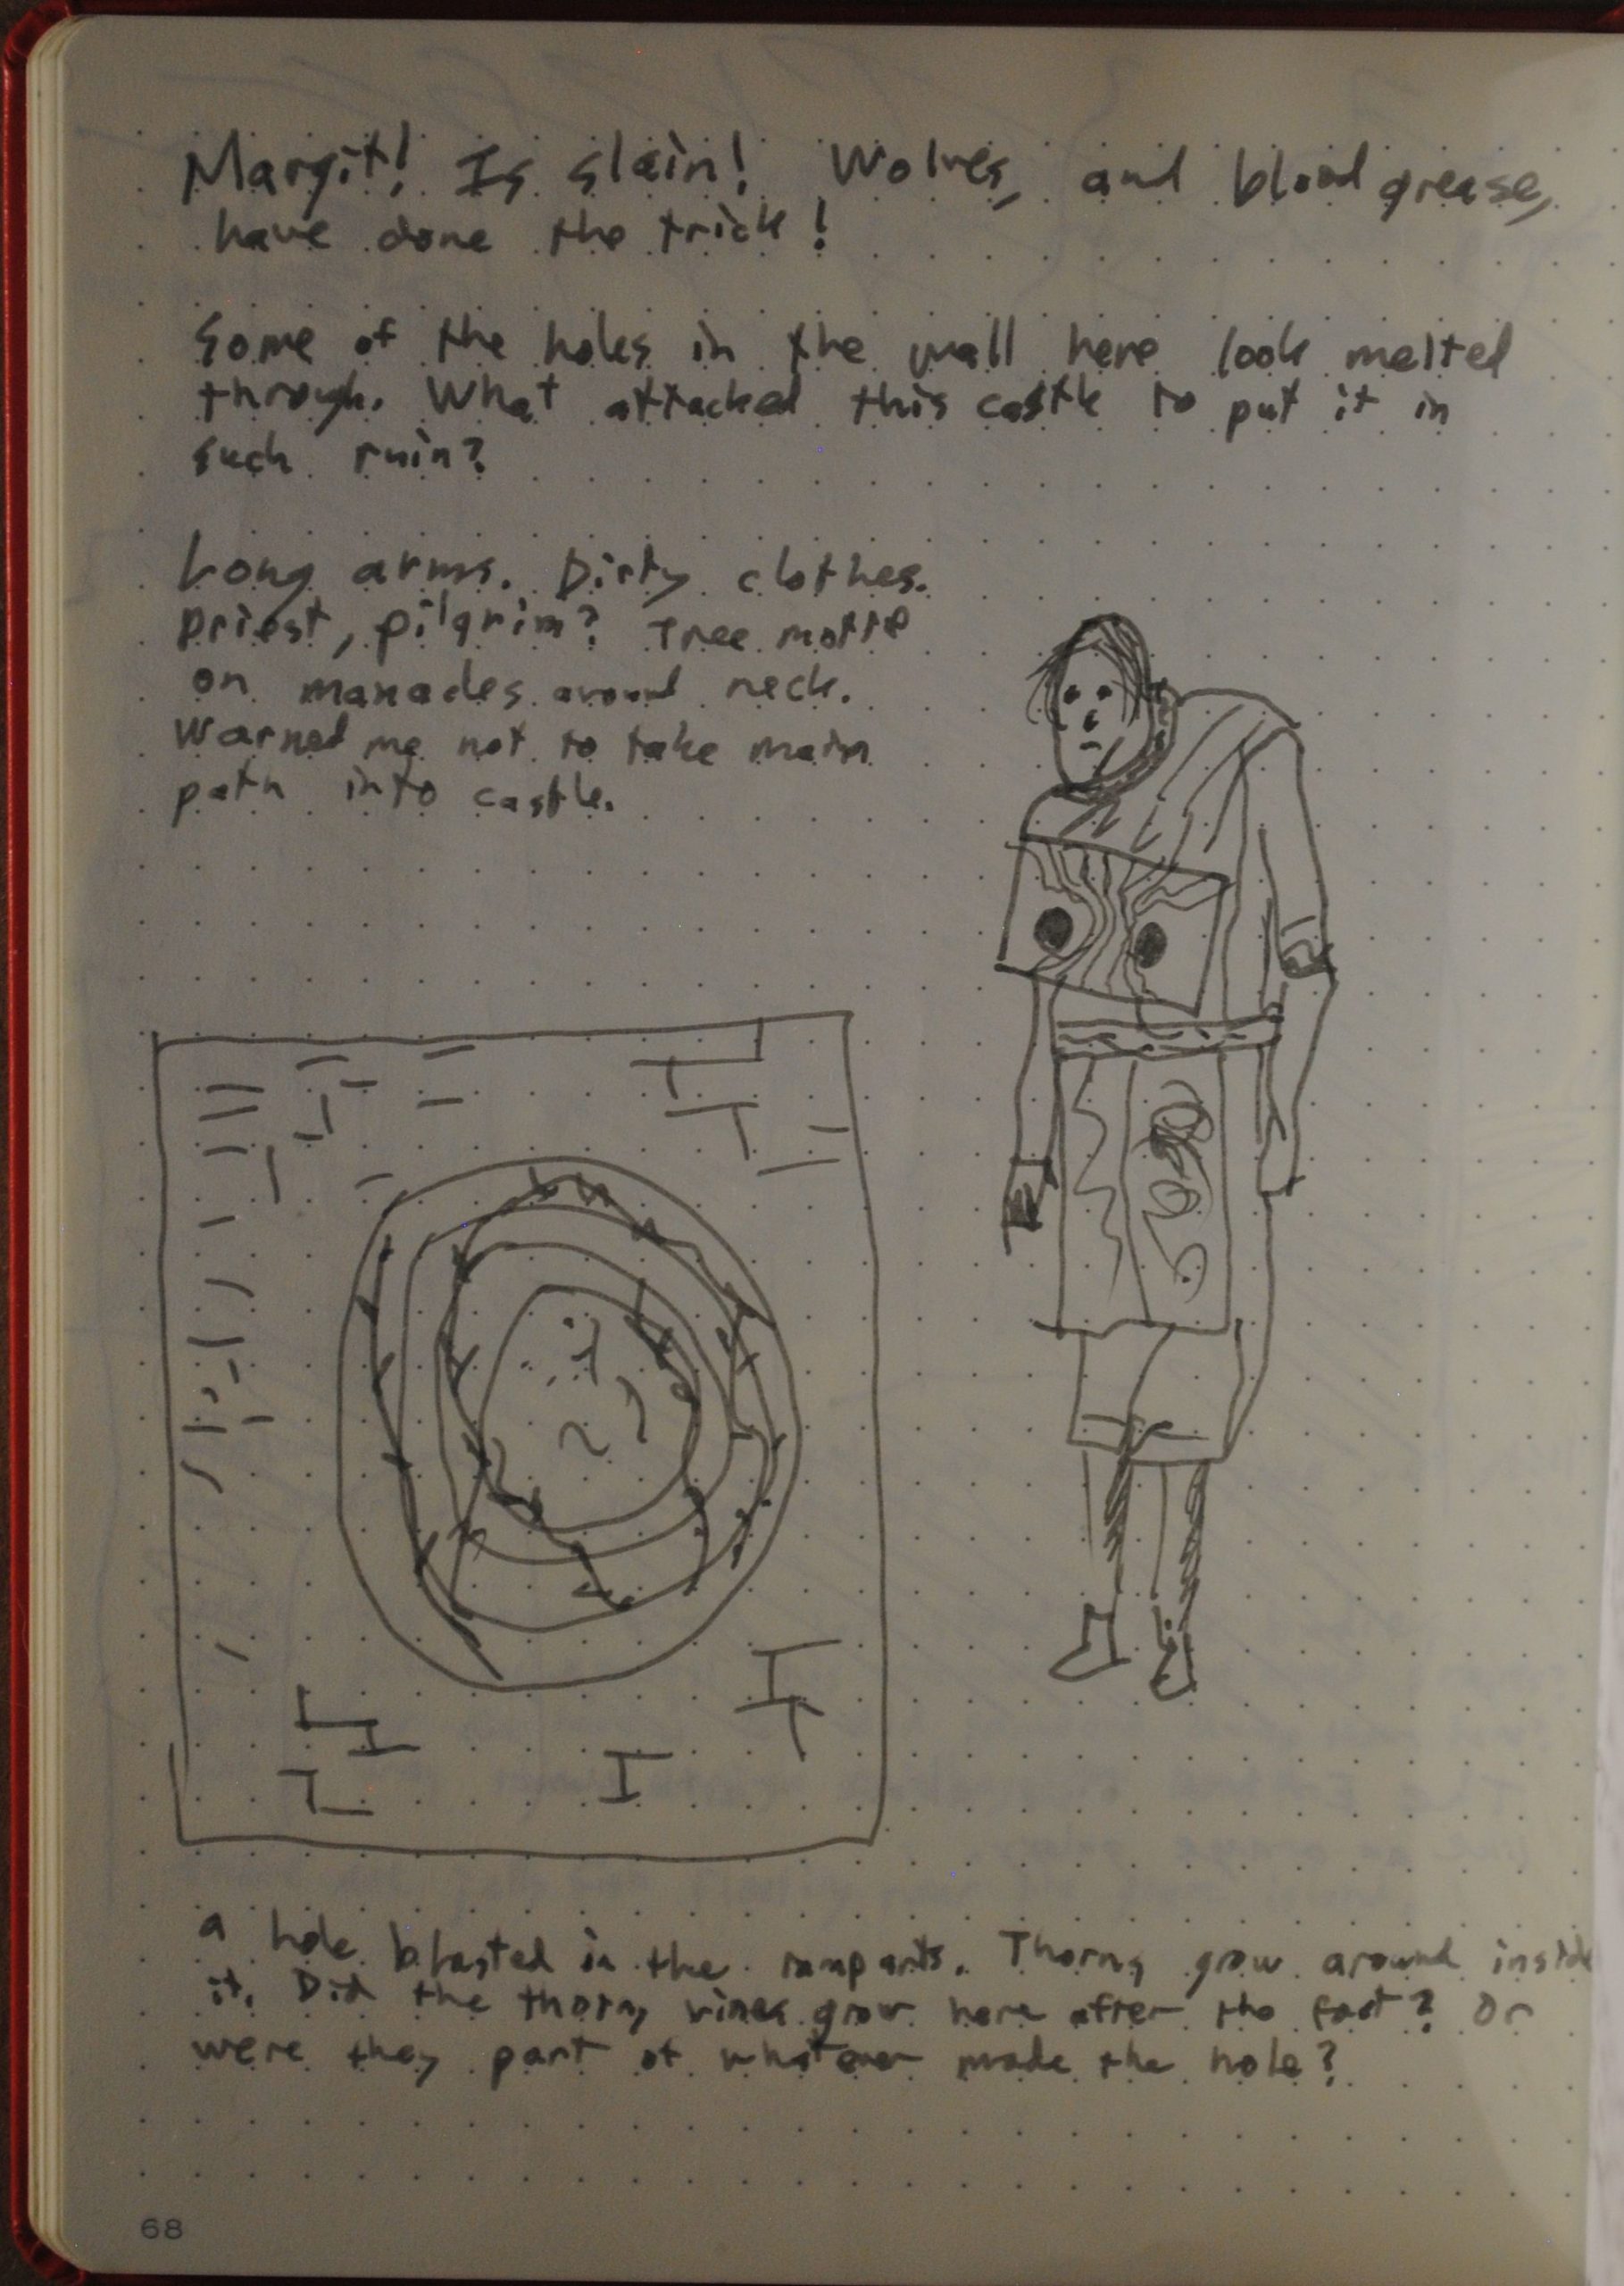 Margit! Is slain! Wolves, and blood grease,
have done the trick!
Some of the holes in the wall here look melted
through. What attacked this castle to put it in
such ruin?
Long arms. Dirty clothes.
Priest, pilgrim? Tree motif
on manacles around neck.
Warned me not to take main
path into castle.
a hole blasted in the ramparts. Thorns grow around inside
it. Did the thorny vines grow here after the fact? Or
were they part of whatever made the hole?
68